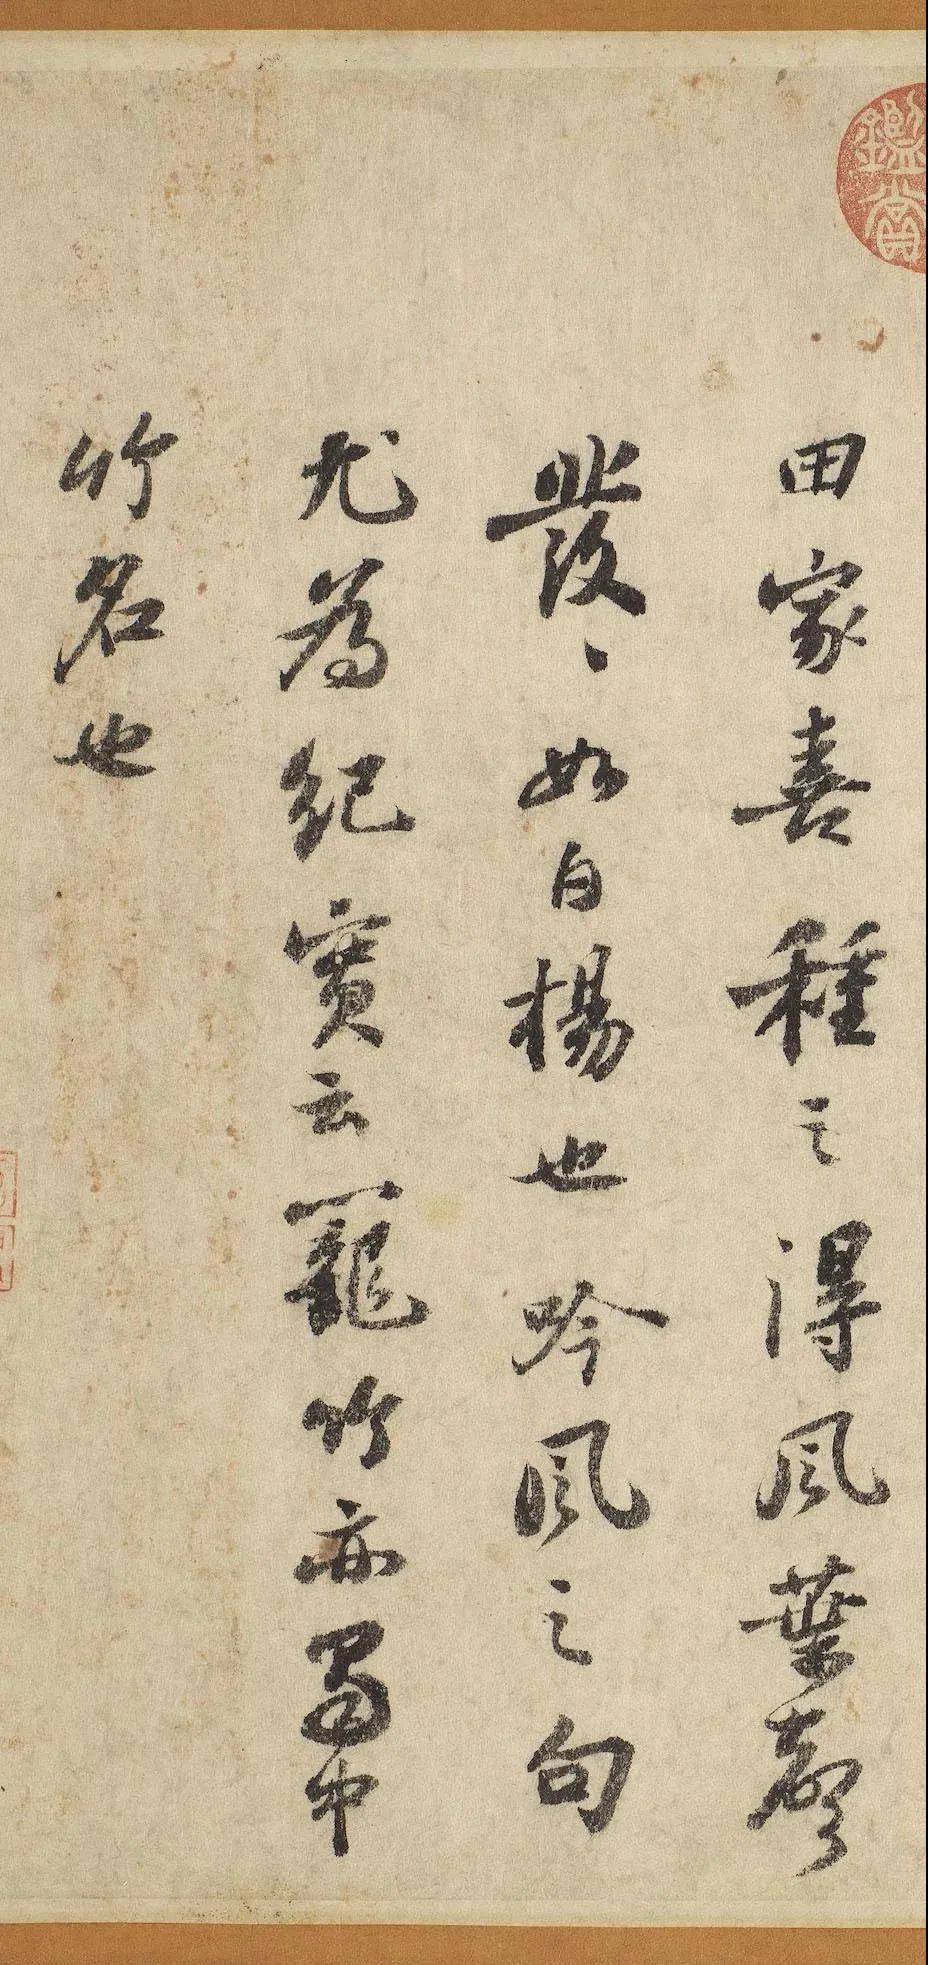 田家喜種之得風葉聲
發〻如白楊也吟風之句
尤為紀實云籠竹亦蜀中
竹名也
鑑賞